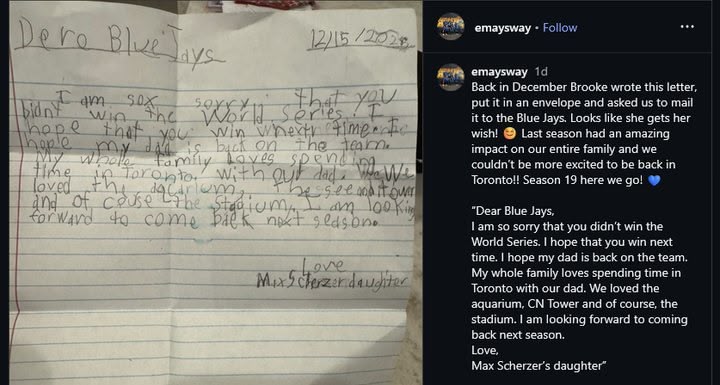 Dero Blue Jays
12/15/2025
I am sox sorry that you
didn't win the World Series. I
hope that you win wnextr time. I
hople my dad is back on the team.
My whole family loves spending
time in Toronto. with our dad. We
loved the the
and of couse the stadium. I am looking
forward to come back next season.
Love
Max Scherzer daughter
emaysway • Follow
emaysway 1d
Back in December Brooke wrote this letter,
put it in an envelope and asked us to mail
it to the Blue Jays. Looks like she gets her
wish! 😊 Last season had an amazing
impact on our entire family and we
couldn't be more excited to be back in
Toronto!! Season 19 here we go! 💙
“Dear Blue Jays,
I am so sorry that you didn't win the
World Series. I hope that you win next
time. I hope my dad is back on the team.
My whole family loves spending time in
Toronto with our dad. We loved the
aquarium, CN Tower and of course, the
stadium. I am looking forward to coming
back next season.
Love,
Max Scherzer's daughter”